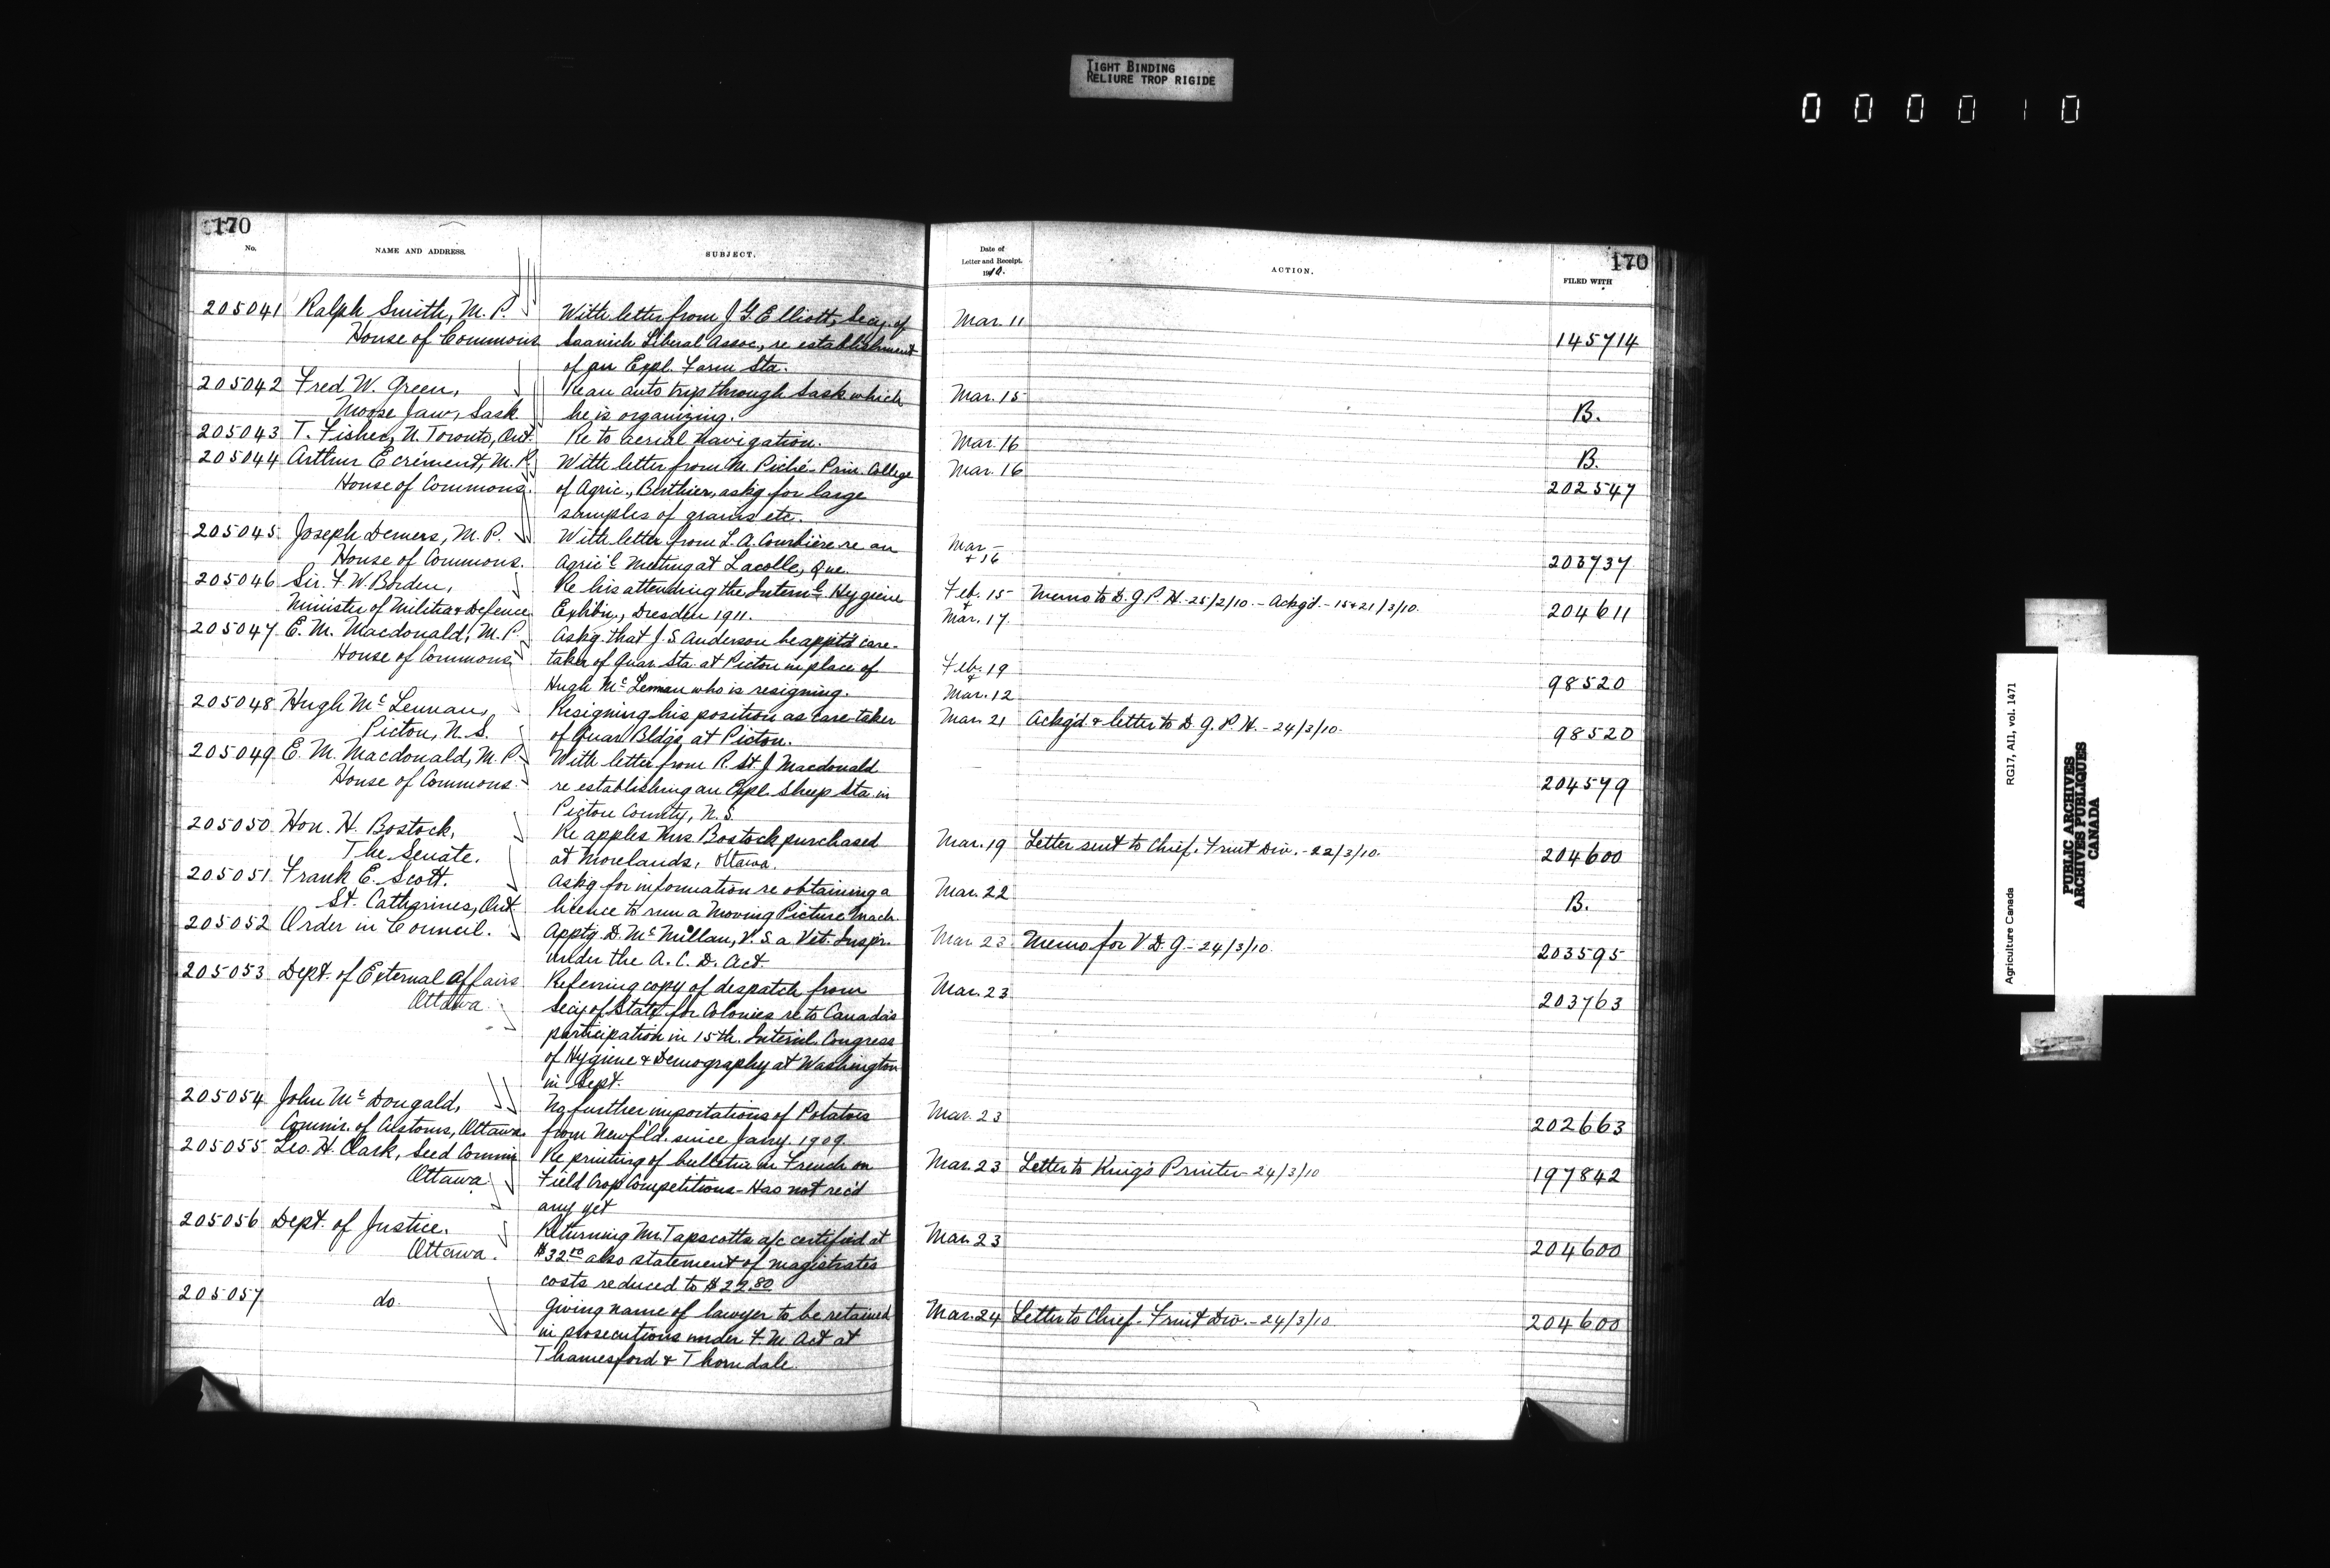 TIGHT BINDING
RELIURE TROP RIGIDE
000010
170
No.
NAME AND ADDRESS.
SUBJECT.
205041 Ralph Smith, M.P. With letter from J.G. Elliott, Secy. of
House of Commons Saanich Liberal Assoc., re establishment
of an Expl. Farm Sta.
205042 Fred W. Green, Re an auto trip through Sask which
Moose Jaw, Sask. he is organizing.
205043 T. Fisher, N. Toronto, Ont. Re to aerial navigation.
205044 Arthur Ecrément, M.P. With letter from M. Piché - Prin. College
House of Commons. of Agric., Berthier, askg for large
samples of grains etc.
205045 Joseph Demers, M.P. With letter from L.A. Courbière re an
House of Commons. Agric'l Meeting at Lacolle, Que.
205046 Sir. F.W. Borden, Re his attending the Internl. Hygiene
Minister of Militia & Defence Exhibn., Dresden 1911.
205047 E.M. Macdonald, M.P. Askg. that J.S. Anderson be apptd care-
House of Commons, taker of Quar. Sta. at Pictou in place of
Hugh McLennan who is resigning.
205048 Hugh McLennan, Resigning his position as care-taker
Pictou, N.S. of Quar. Bldgs. at Pictou.
205049 E.M. Macdonald, M.P. With letter from R. St. J. Macdonald
House of Commons. re establishing an Expl. Sheep Sta. in
Pictou County, N.S.
205050 Hon. H. Bostock, Re apples Mrs Bostock purchased
The Senate. at Morelands, Ottawa.
205051 Frank E. Scott. Askg for information re obtaining a
St. Catharines, Ont. licence to run a Moving Picture Mach.
205052 Order in Council. Apptg. D. McMillan, V.S. a Vet. Inspr.
under the A.C.D. Act.
205053 Dept. of External Affairs Referring copy of despatch from
Ottawa Secy of State for Colonies re to Canada's
participation in 15th. Internl. Congress
of Hygiene & Demography at Washington
in Sept.
205054 John McDougald, No further importations of Potatoes
Commr. of Customs, Ottawa. from Newf'ld. since Jany. 1909.
205055 Geo. H. Clark, Seed Commr Re printing of bulletin in French on
Ottawa Field Crop Competitions - Has not rec'd
any yet
205056 Dept. of Justice. Returning Mr. Tapscotts a/c certified at
Ottawa. also statement of magistrates
costs reduced to
205057 do. Giving name of lawyer to be retained
in prosecutions under F.M. Act at
Thamesford & Thorndale
170
Date of
Letter and Receipt.
1910.
ACTION.
FILED WITH
Mar. 11
145714
Mar. 15
B.
Mar. 16
B.
Mar. 16
202547
Mar –
+ 16
203737
Feb. 15 Memo to D.G.P.H. - 25/2/10. - Ackg'd. - 15 & 21/3/10.
+ 204611
Mar. 17.
Feb. 19
& 98520
Mar. 12
Mar. 21 Ackg'd & letter to D.G.P.H. - 24/3/10.
98520
204579
Mar. 19 Letter sent to Chief. Fruit Div. - 22/3/10.
204600
Mar. 22
B.
Mar. 23 Memo for V.D.G. - 24/3/10.
203595
Mar. 23
203763
Mar. 23
202663
Mar. 23 Letter to King's Printer - 24/3/10
197842
Mar. 23
204600
Mar. 24 Letter to Chief. Fruit Div. - 24/3/10.
204600
Agriculture Canada RG17, A11, vol. 1471
PUBLIC ARCHIVES
ARCHIVES PUBLIQUES
CANADA